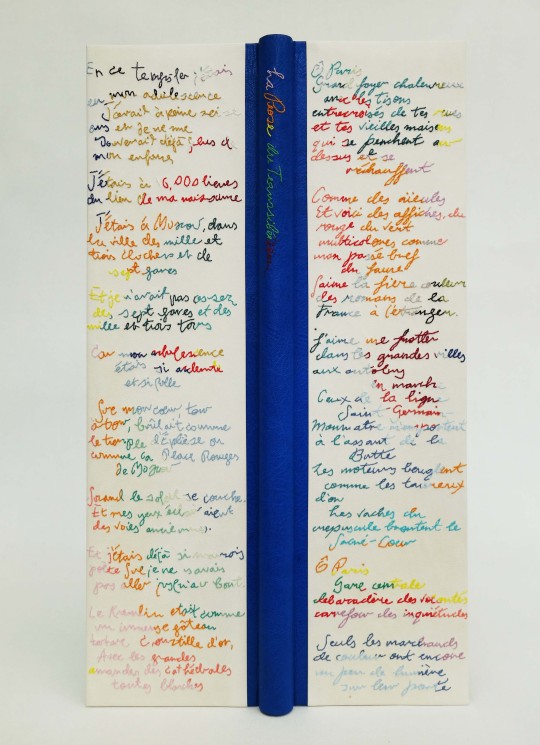 En ce temps-là j'étais
en mon adolescence
J'avait à peine seize
ans et je ne me
souvenait déjà plus de
mon enfance
J'étais à 16,000 lieues
du lieu de ma naissance
J'étais à Moscou, dans
la ville des mille et
trois clochers et de
sept gares
Et je n'avait pas assez
des sept gares et des
mille et trois tours
Car mon adolescence
était si ardente
et si folle
Que mon cœur, tour
à tour, brûlait comme
le temple d'Ephèse ou
comme la Place Rouge
de Moscou
Quand le soleil se couche.
Et mes yeux éclairaient
des voies anciennes.
Et j'étais déjà si mauvais
poète que je ne savais
pas aller jusqu'au bout.
Le Kremlin était comme
un immense gâteau
tartare croustillé d'or,
Avec les grandes
amandes des cathédrales
toutes blanches
La Prose du Transsibérien
O Paris
Grand foyer chaleureux
avec les tisons
entrecroisés de tes rues
et tes vieilles maisons
qui se penchent au
dessus et se
réchauffent
Comme des aïeules
Et voici des affiches, du
rouge du vert
multicolores comme
mon passé bref
du jaune
J'aime la fière couleur
des romans de la
France à l'étranger.
J'aime me frotter
dans les grandes villes
aux autobus
en marche
Ceux de la ligne
Saint Germain
Montmatre m'emportent
à l'assaut de la
Butte
Les moteurs beuglent
comme les taureaux
d'or
Les vaches du
crepuscule broutent le
Sacré-Cœur
O Paris
Gare centrale
débarcadère des volontés
carrefour des inquiétudes
Seuls les marchands
de couleur ont encore
un peu de lumière
sur leur porte